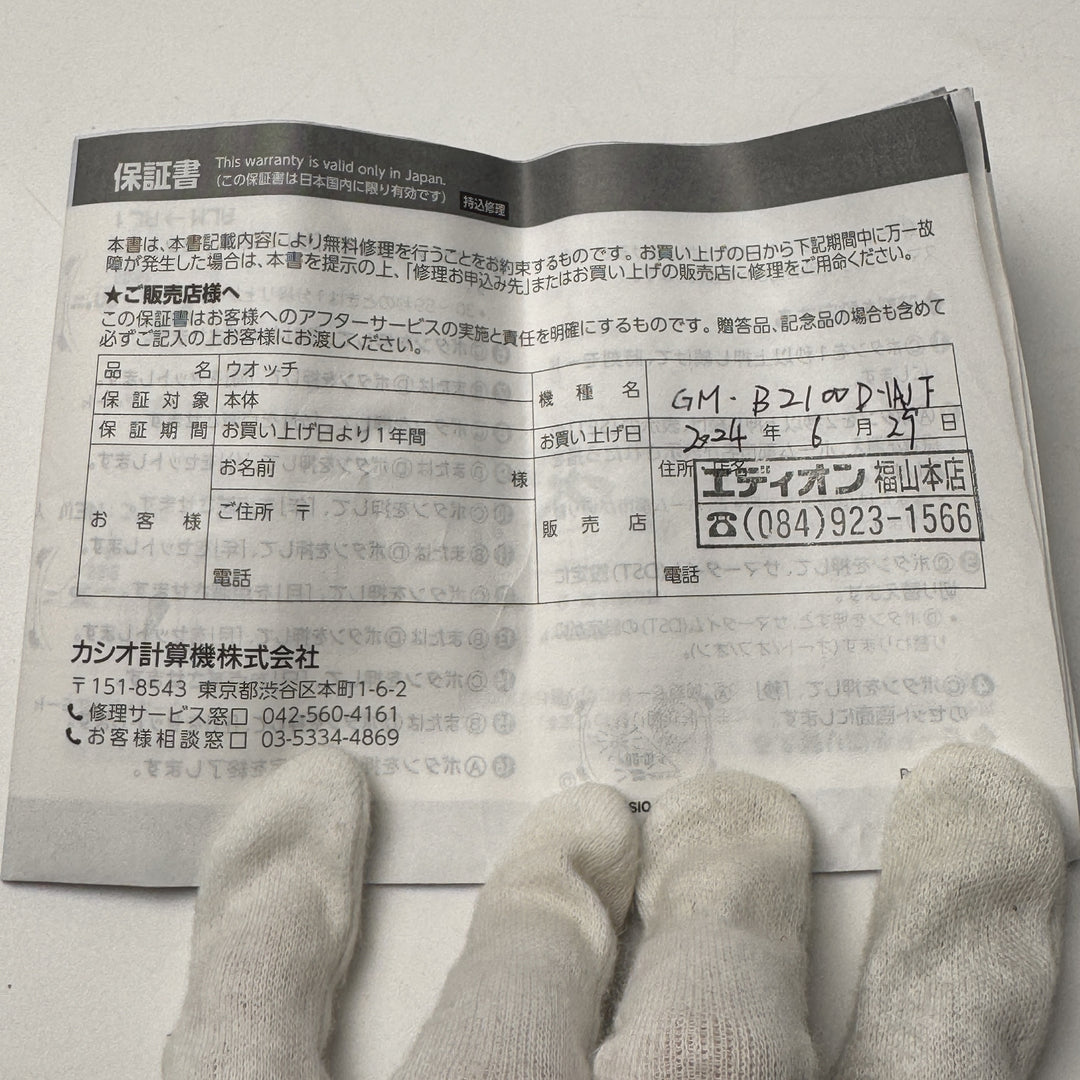 保証書
This warranty is valid only in Japan.
(この保証書は日本国内に限り有効です)
持込修理
本書は、本書記載内容により無料修理を行うことをお約束するものです。お買い上げの日から下記期間中に万一故
障が発生した場合は、本書を提示の上、「修理お申込み先」またはお買い上げの販売店に修理をご用命ください。
★ご販売店様へ
この保証書はお客様へのアフターサービスの実施と責任を明確にするものです。贈答品、記念品の場合も含めて
必ずご記入の上お客様にお渡しください。
品名 ウオッチ
保証対象 本体
保証期間 お買い上げ日より1年間
お客様
お名前 様
ご住所 〒
電話
機種名 GM-B2100D-1AJF
お買い上げ日 2024 年 6 月 29 日
販売店
住所・店名
エディオン 福山本店
☎(084)923-1566
電話
カシオ計算機株式会社
〒151-8543 東京都渋谷区本町1-6-2
修理サービス窓口 042-560-4161
お客様相談窓口 03-5334-4869